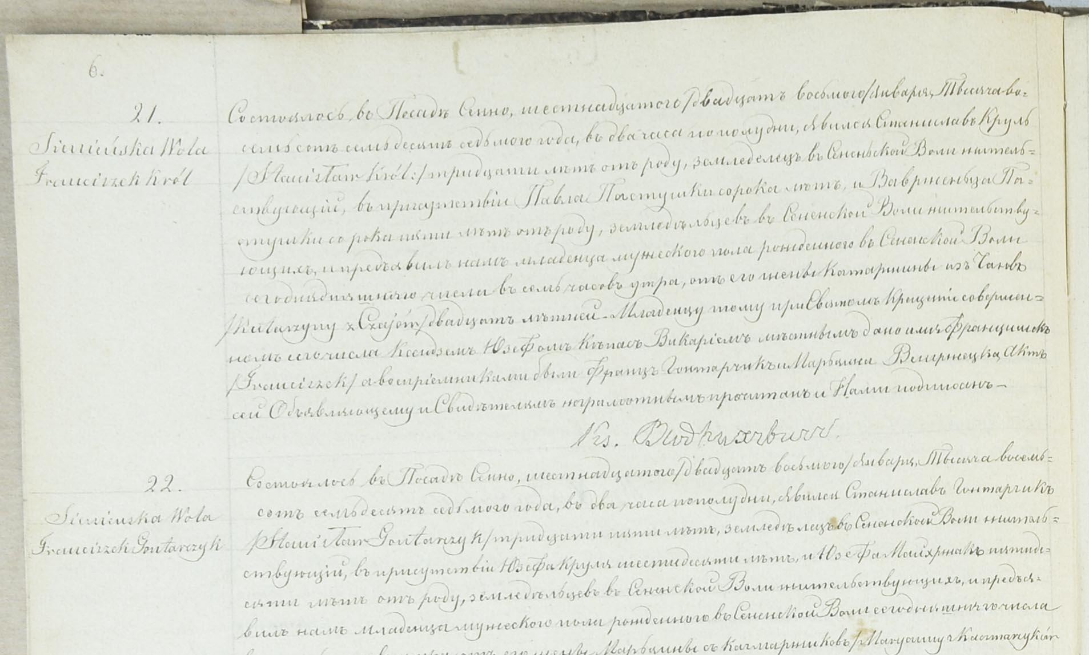 6.
21.
Sienieńska Wola
Franciszek Król
Состоялось въ Посадѣ Сенно, шестнадцатого /двадцать восьмого/ Января, Тысяча во-
семьсотъ семьдесятъ седьмого года, въ два часа по полудни, явился Станиславъ Круль
/Stanisław Król:/ тридцати лѣтъ отъ роду, земледелецъ въ Сененской Воли житель-
ствующій, въ присутствіи Павла Пастушки сорока лѣтъ, и Па-
стушки сорока пяти лѣтъ отъ роду, земледѣльцевъ въ Сененской Воли жительству-
ющихъ, и предъявилъ намъ младенца мужескаго пола рожденного въ Сененской Воли
числа въ семь часовъ утра, отъ его жены Катаржины изъ Чаювъ
/Katarzyny z Czajów/ двадцать лѣтней. Младенцу тому при Святомъ Крещеніи совершен-
номъ сего числа Ксендземъ Юзефомъ Викаріемъ мѣстнымъ дано имя Францишекъ
/Franciszek/ а воспріемниками были Францъ Гонтарчикъ и Марьянна Актъ
сей Объявляющему и Свидѣтелямъ неграмотнымъ прочитанъ и Нами подписанъ.
Ks.
22.
Sienieńska Wola
Franciszek Gontarczyk
Состоялось въ Посадѣ Сенно, шестнадцатого /двадцать восьмого/ Января, Тысяча восемь-
сотъ семьдесятъ седьмого года, въ два часа по полудни, явился Станиславъ Гонтарчикъ
/Stanisław Gontarczyk/ тридцати пяти лѣтъ, земледѣлецъ въ Сененской Воли житель-
ствующій, въ присутствіи Юзефа Круля шестидесяти лѣтъ, и Юзефа пятиде-
сяти лѣтъ отъ роду, земледѣльцевъ въ Сененской Воли жительствующихъ, и предъя-
вилъ намъ младенца мужескаго пола рожденного въ Сененской Воли числа
отъ его жены Марьянны съ Качмарчиковъ /Maryanny z Kaczmarczyków